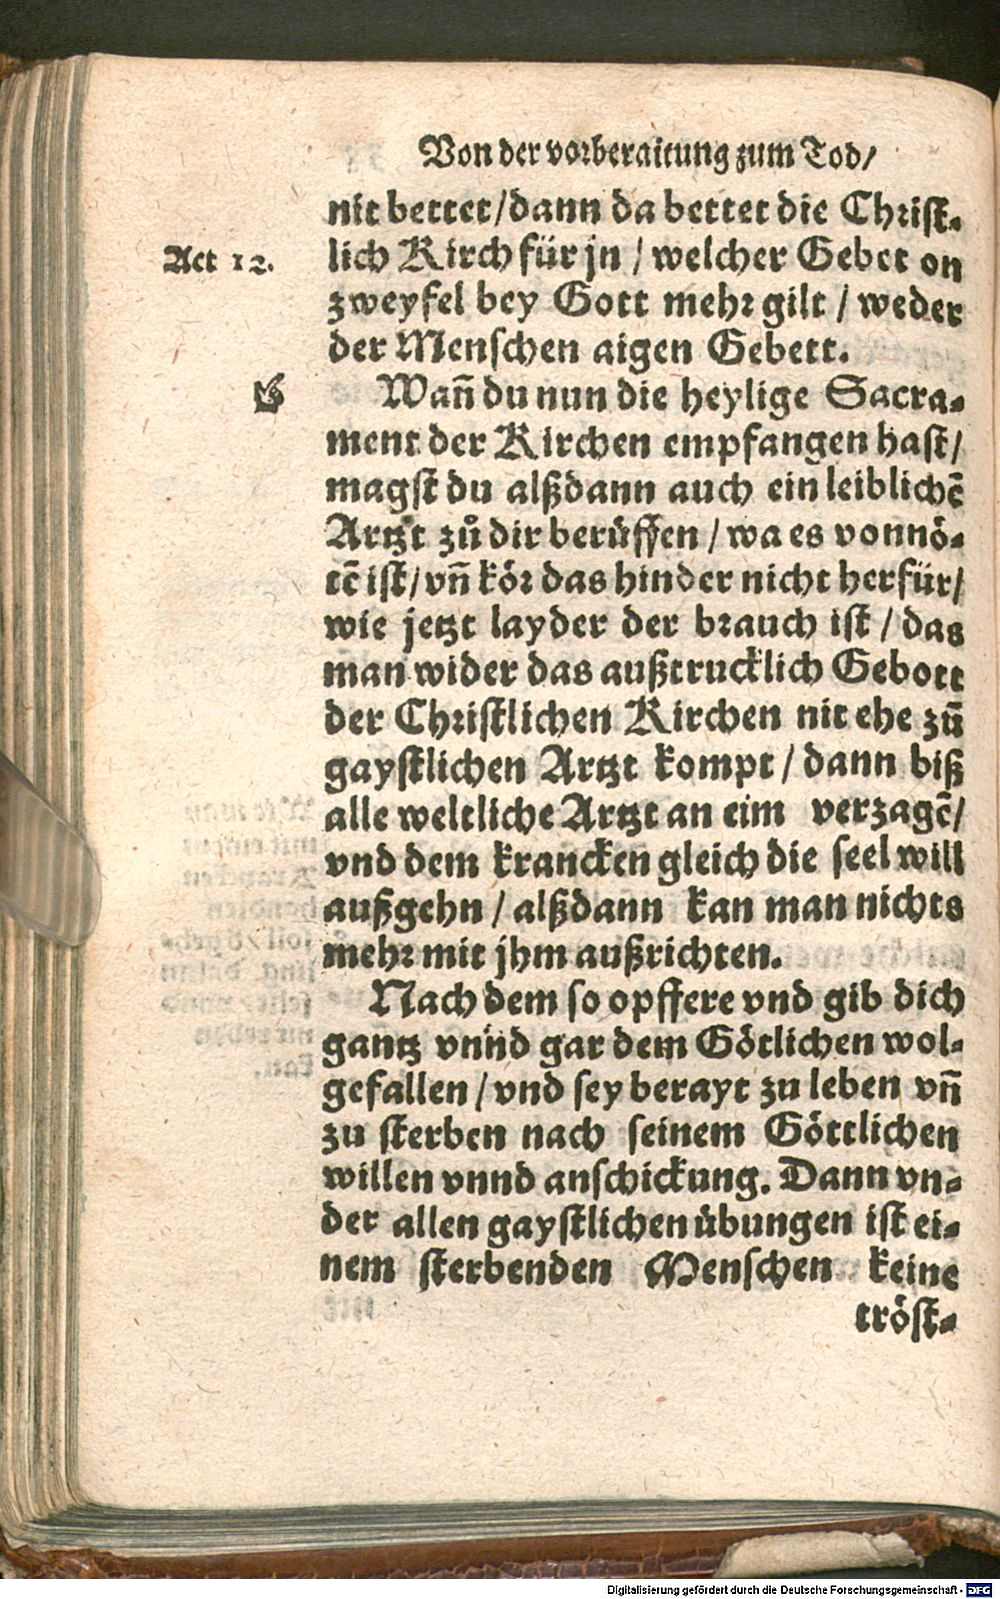 Von der vorberaitung zum Tod/
nit bettet/dann da bettet die Christ-
Act 12.
lich Kirch für jn / welcher Gebet on
zweyfel bey Gott mehr gilt / weder
der Menschen aigen Gebett.
Wañ du nun die heylige Sacra-
ment der Kirchen empfangen hast/
magst du alßdann auch ein leiblichẽ
Artzt zů dir berüffen / wa es vonnö-
tẽ ist/ vñ kör das hinder nicht herfür/
wie jetzt layder der brauch ist / das
man wider das außtrucklich Gebott
der Christlichen Kirchen nit ehe zũ
gaystlichen Artzt kompt / dann biß
alle weltliche Artzt an eim verzagẽ/
vnd dem krancken gleich die seel will
außgehn / alßdann kan man nichts
mehr mit jhm außrichten.
Nach dem so opffere vnd gib dich
gantz vnnd gar dem Götlichen wol-
gefallen / vnd sey berayt zu leben vñ
zu sterben nach seinem Göttlichen
willen vnnd anschickung. Dann vn-
der allen gaystlichen übungen ist ei-
nem sterbenden Menschen keine
tröst-
Digitalisierung gefördert durch die Deutsche Forschungsgemeinschaft - DFG